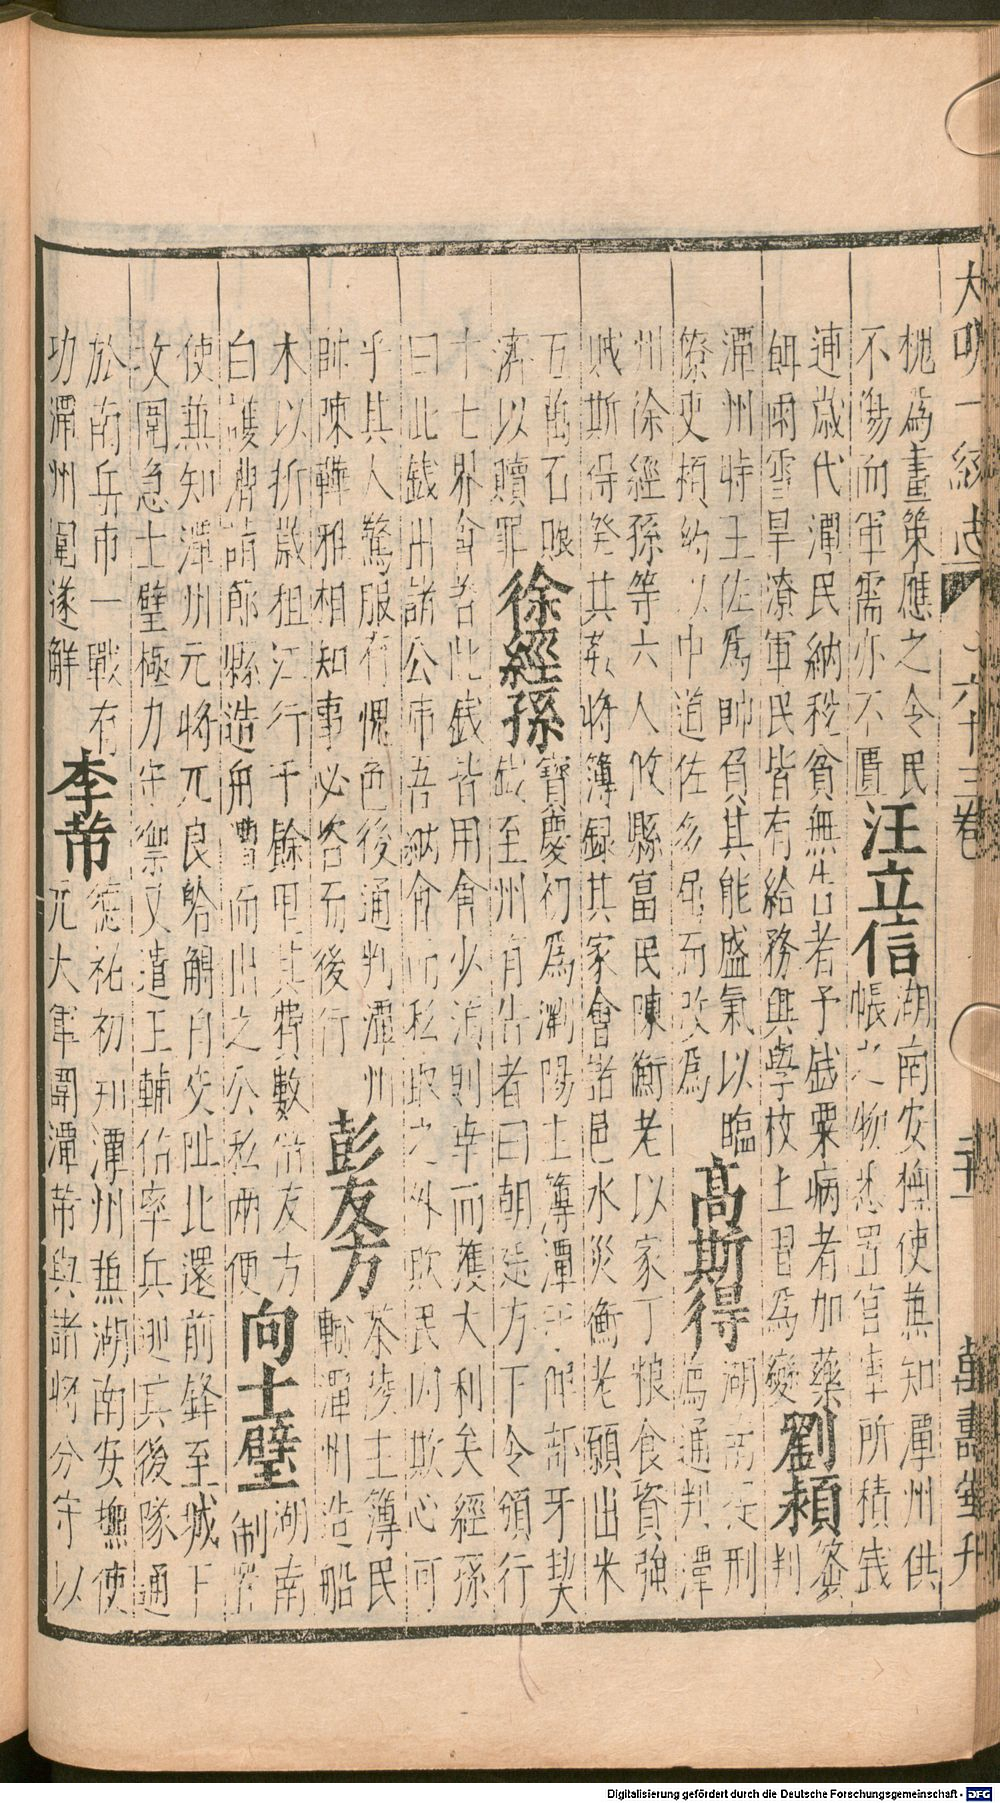 大明一統志 六十三卷 萬壽堂刊
桃為畫策應之令民
不傷而軍需亦不匱
汪立信
湖南安撫使兼知潭州供
帳之物悉置官庫所積錢
連歲代潭民納稅貧無告者予錢粟病者加藥
餌雨雪旱潦軍民皆有給務興學校士習為變
劉頴
簽
判
潭州特王佐為帥負其能盛氣以臨
僚吏頴約以中道佐多屈而改為
高斯得
湖南提刑
為通判潭
州徐經孫等六人攸縣富民陳衡老以家丁粮食資強
賊斯得發其姦將簿録其家會諸邑水災衡老願出米
五萬石賑
濟以贖罪
徐經孫
寶慶初為瀏陽主簿潭守俾部牙契
錢至州有告者曰朝廷方下令頒行
十七界會若此錢皆用會少須則幸而獲大利矣經孫
曰此錢出諸公帑吾納會而私取之外欺民内欺心可
乎其人驚服有愧色後通判潭州
帥陳韡雅相知事必咨而後行
彭友方
茶陵主簿民
輸潭州造船
木以折歲租江行千餘里其費數倍友方
白護漕請節縣造舟漕而出之公私兩便
向士璧
湖南
制置
使兼知潭州元將兀良䬣觧自交阯比還前鋒至城下
攻圍急士璧極力守禦又遣王輔佑率兵迎其後隊通
於南兵市一戰有
功潭州圍遂解
李芾
德祐初知潭州兼湖南安撫使
元大軍圍潭芾與諸將分守以
Digitalisierung gefördert durch die Deutsche Forschungsgemeinschaft - DFG